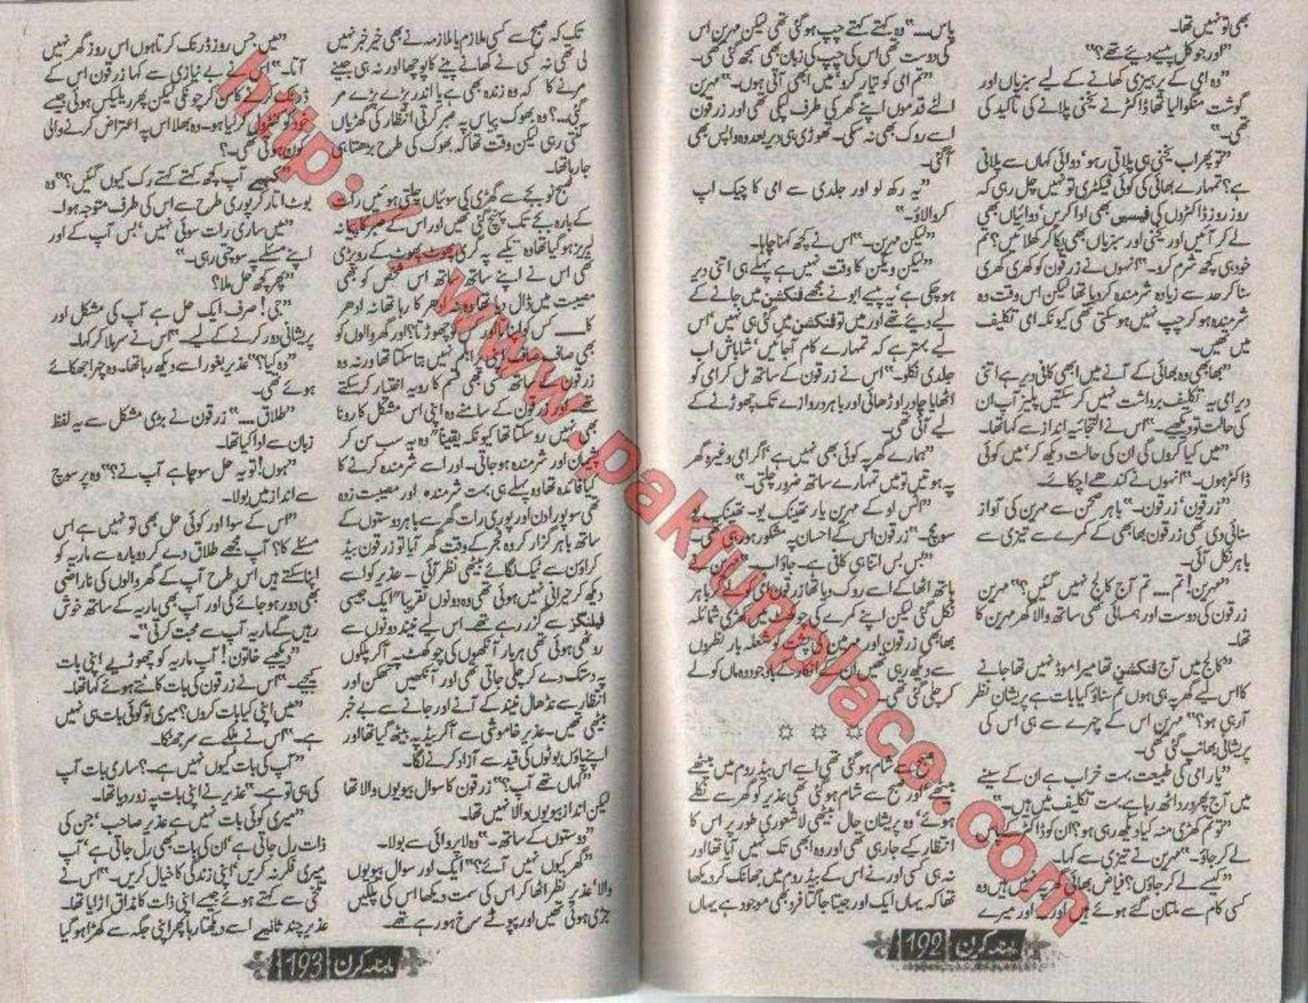 بھی تو نہیں تھا۔
”اور جو کل پیسے دیے تھے؟“
”وہ امی کے پرہیزی کھانے کے لیے سبزیاں اور
گوشت منگوا لیا تھا ڈاکٹر نے یخنی پلانے کی تاکید کی
تھی۔“
”تو پھر اب یخنی ہی پلاتی رہو‘ دوائی کہاں سے پلانی
ہے؟ تمہارے بھائی کی کوئی فیکٹری تو نہیں چل رہی کہ
روز روز ڈاکٹروں کی فیسیں بھی ادا کریں‘ دوائیاں بھی
لے کر آئیں اور یخنی اور سبزیاں بھی پکا کر کھلائیں؟ تم
خود ہی کچھ شرم کرو۔“ انہوں نے زرقون کو کھری کھری
سنا کر حد سے زیادہ شرمندہ کر دیا تھا لیکن اس وقت وہ
شرمندہ ہو کر چپ نہیں ہو سکتی تھی کیونکہ امی تکلیف
میں تھیں۔
”بھابھی وہ بھائی کے آنے میں ابھی کافی دیر ہے اتنی
دیر امی یہ تکلیف برداشت نہیں کر سکتیں پلیز آپ ان
کی حالت تو دیکھیے۔“ اس نے التجائیہ انداز سے کہا تھا۔
”میں کیا کروں گی ان کی حالت دیکھ کر‘ میں کوئی
ڈاکٹر ہوں۔“ انہوں نے کندھے اچکائے۔
”زرقون‘ زرقون۔“ باہر صحن سے مہرین کی آواز
سنائی دی تھی زرقون بھابھی کے کمرے سے تیزی سے
باہر نکل آئی۔
”مہرین! تم.... تم آج کالج نہیں گئیں؟“ مہرین
زرقون کی دوست اور ہمسائی تھی ساتھ والا گھر مہرین کا
تھا۔
”کالج میں آج فنکشن تھا میرا موڈ نہیں تھا جانے
کا اس لیے گھر پہ ہی ہوں تم سناؤ کیا بات ہے پریشان نظر
آ رہی ہو؟“ مہرین اس کے چہرے سے ہی اس کی
پریشانی بھانپ گئی تھی۔
”یار امی کی طبیعت بہت خراب ہے ان کے سینے
میں آج پھر درد اٹھ رہا ہے بہت تکلیف میں ہیں۔“
”تو تم کھڑی منہ کیا دیکھ رہی ہو؟ ان کو ڈاکٹر کے پاس
لے کر جاؤ۔“ مہرین نے تیزی سے کہا۔
”کیسے لے کر جاؤں؟ فیاض بھائی گھر پہ نہیں ہیں وہ
کسی کام سے ملتان گئے ہوئے ہیں اور.... اور میرے
پاس....“ وہ کہتے کہتے چپ ہو گئی تھی لیکن مہرین اس
کی دوست تھی اس کی چپ کی زبان بھی سمجھ گئی تھی۔
”تم امی کو تیار کرو‘ میں ابھی آتی ہوں۔“ مہرین
الٹے قدموں اپنے گھر کی طرف لپکی تھی اور زرقون
اسے روک بھی نہ سکی۔ تھوڑی ہی دیر بعد وہ واپس بھی
آ گئی۔
”یہ رکھ لو اور جلدی سے امی کا چیک اپ
کروالاؤ۔“
”لیکن مہرین۔“ اس نے کچھ کہنا چاہا۔
”لیکن ویکن کا وقت نہیں ہے پہلے ہی اتنی دیر
ہو چکی ہے‘ یہ پیسے ابو نے مجھے فنکشن میں جانے کے
لیے دیے تھے اور میں تو فنکشن میں گئی ہی نہیں‘ اس
لیے بہتر ہے کہ تمہارے کام آ جائیں‘ شاباش اب
جلدی نکلو۔“ اس نے زرقون کے ساتھ مل کر امی کو
اٹھایا چادر اوڑھائی اور باہر دروازے تک چھوڑنے کے
لیے آئی تھی۔
”ہمارے گھر پہ کوئی بھی نہیں ہے‘ اگر امی وغیرہ گھر
پہ ہوتیں تو میں تمہارے ساتھ ضرور چلتی۔“
”اٹس اوکے مہرین یار تھینک یو۔ تھینک یو
سوچ۔“ زرقون اس کے احسان پہ مشکور ہو رہی تھی۔
”بس بس اتنا ہی کافی ہے۔ جاؤ اب۔“ مہرین نے
ہاتھ اٹھا کے اسے روک دیا تھا زرقون امی کو لے کر باہر
نکل گئی لیکن اپنے کمرے کی چوکھٹ میں کھڑی شمائلہ
بھابھی زرقون اور مہرین کی پشت کو شعلہ بار نظروں
سے دیکھ رہی تھیں ان کے انکار کے باوجود وہ ماں کو لے
کر چلی گئی تھی۔
☼ ☼ ☼
صبح سے شام ہو گئی تھی اسے اس بیڈ روم میں بیٹھے
بیٹھے اور صبح سے شام ہو گئی تھی عذیر کو گھر سے نکلے
ہوئے‘ وہ پریشان حال بیٹھی لاشعوری طور پر اس کا
انتظار کیے جا رہی تھی اور وہ ابھی تک نہیں آیا تھا اور
نہ ہی کسی اور نے اس کے بیڈ روم میں جھانک کر دیکھا
تھا کہ یہاں ایک اور جیتا جاگتا فرد بھی موجود ہے یہاں
ماہنامہ کرن 192
تک کہ صبح سے کسی ملازم یا ملازمہ نے بھی خیر خبر نہیں
لی تھی نہ کسی نے کھانے پینے کا پوچھا اور نہ ہی جینے
مرنے کا کہ وہ زندہ بھی ہے یا اندر پڑے پڑے مر
گئی....؟ وہ بھوک پیاس پہ صبر کرتی انتظار کی گھڑیاں
گنتی رہی لیکن وقت تھا کہ بھوک کی طرح بڑھتا ہی
جا رہا تھا۔
صبح نو بجے سے گھڑی کی سوئیاں چلتی ہوئیں رات
کے بارہ بجے تک پہنچ گئی تھیں اور اس کے صبر کا پیمانہ
لبریز ہو گیا تھا وہ تکیے پہ گری پھوٹ پھوٹ کے رو پڑی
تھی اس نے اپنے ساتھ ساتھ اس شخص کو بھی
مصیبت میں ڈال دیا تھا وہ نہ ادھر کا رہا تھا نہ ادھر
کا.... کس کو اپناتا اور کس کو چھوڑتا؟ اور گھر والوں کو
بھی صاف صاف اپنی پرابلم نہیں بتا سکتا تھا ورنہ وہ
زرقون کے ساتھ کسی بھی قسم کا رویہ اختیار کر سکتے
تھے اور زرقون کے سامنے وہ اپنی اس مشکل کا رونا
بھی نہیں رو سکتا تھا کیونکہ یقیناً وہ یہ سب سن کر
پشیمان اور شرمندہ ہو جاتی۔ اور اسے شرمندہ کرنے کا
کیا فائدہ تھا وہ پہلے ہی بہت شرمندہ اور مصیبت زدہ
تھی سو پورا دن اور پوری رات گھر سے باہر دوستوں کے
ساتھ باہر گزار کر وہ فجر کے وقت گھر آیا تو زرقون بیڈ
کراؤن سے ٹیک لگائے بیٹھی نظر آئی۔ عذیر کو اسے
دیکھ کر حیرانی نہیں ہوئی تھی وہ دونوں تقریباً ایک جیسی
فیلنگز سے گزر رہے تھے۔ اس لیے نیند دونوں سے
روٹھی ہوئی تھی ہر بار آنکھوں کی چوکھٹ پہ آ کر پلکوں
پہ دستک دے کر چلی جاتی تھی اور آنکھیں تھکن اور
انتظار سے نڈھال نیند کے آنے اور جانے سے بے خبر
بیٹھی تھیں۔ عذیر خاموشی سے آ کر بیڈ پہ بیٹھ گیا تھا اور
اپنے پاؤں بوٹوں کی قید سے آزاد کرنے لگا۔
”کہاں تھے آپ؟“ زرقون کا سوال بیویوں والا تھا
لیکن انداز بیویوں والا نہیں تھا۔
”دوستوں کے ساتھ۔“ وہ لاپروائی سے بولا۔
”گھر کیوں نہیں آئے؟“ ایک اور سوال بیویوں
والا‘ عذیر نے نظر اٹھا کر اس کی سمت دیکھا اس کی پلکیں
جڑی ہوئی تھیں اور پپوٹے سرخ ہو رہے تھے۔
”میں جس روز ڈرنک کرتا ہوں اس روز گھر نہیں
آتا۔“ اس نے بے نیازی سے کہا زرقون اس کے
ڈرنک کرنے کا سن کر چونکی لیکن پھر ریلیکس ہوئی جیسے
خود کو کنٹرول کر لیا ہو۔ وہ بھلا اس پہ اعتراض کرنے والی
کون ہوتی تھی۔؟
”کہیے آپ کچھ کہتے کہتے رک کیوں گئیں؟“ وہ
بوٹ اتار کر پوری طرح سے اس کی طرف متوجہ ہوا۔
”میں ساری رات سوئی نہیں‘ بس آپ کے اور
اپنے مسئلے پہ سوچتی رہی۔“
”پھر کچھ حل ملا؟“
”جی! صرف ایک حل ہے آپ کی مشکل اور
پریشانی دور کرنے کے لیے۔“ اس نے سر ہلا کر کہا۔
”وہ کیا؟“ عذیر بغور اسے دیکھ رہا تھا۔ وہ چہرا جھکائے
ہوئے تھی۔
”طلاق....“ زرقون نے بڑی مشکل سے یہ لفظ
زبان سے ادا کیا تھا۔
”ہوں! تو یہ حل سوچا ہے آپ نے؟“ وہ پر سوچ
سے انداز میں بولا۔
”اس کے سوا اور کوئی حل بھی تو نہیں ہے اس
مسئلے کا؟ آپ مجھے طلاق دے کر دوبارہ سے ماریہ کو
اپنا سکتے ہیں اس طرح آپ کے گھر والوں کی ناراضی
بھی دور ہو جائے گی اور آپ بھی ماریہ کے ساتھ خوش
رہیں گے ماریہ آپ سے محبت کرتی“۔
”دیکھیے خاتون! آپ ماریہ کو چھوڑیے اپنی بات
کیجیے۔“ اس نے زرقون کی بات کاٹتے ہوئے کہا تھا۔
”میں اپنی کیا بات کروں؟ میری تو کوئی بات ہی نہیں
ہے۔“ اس نے ہلکے سے سر جھٹکا۔
”آپ کی بات کیوں نہیں ہے۔؟ ساری بات آپ
کی ہی تو ہے۔“ عذیر نے اپنی بات پہ زور دیا تھا۔
”میری کوئی بات نہیں ہے عذیر صاحب‘ جن کی
ذات رل جاتی ہے‘ ان کی بات بھی رل جاتی ہے‘ آپ
میری فکر نہ کریں‘ اپنی زندگی کا خیال کریں۔“ اس نے
تلخی سے کہتے ہوئے جیسے اپنی ذات کا مذاق اڑایا تھا۔
عذیر چند ثانیے اسے دیکھتا رہا پھر اپنی جگہ سے کھڑا ہو گیا
ماہنامہ کرن 193
http://www.pakfunplace.com